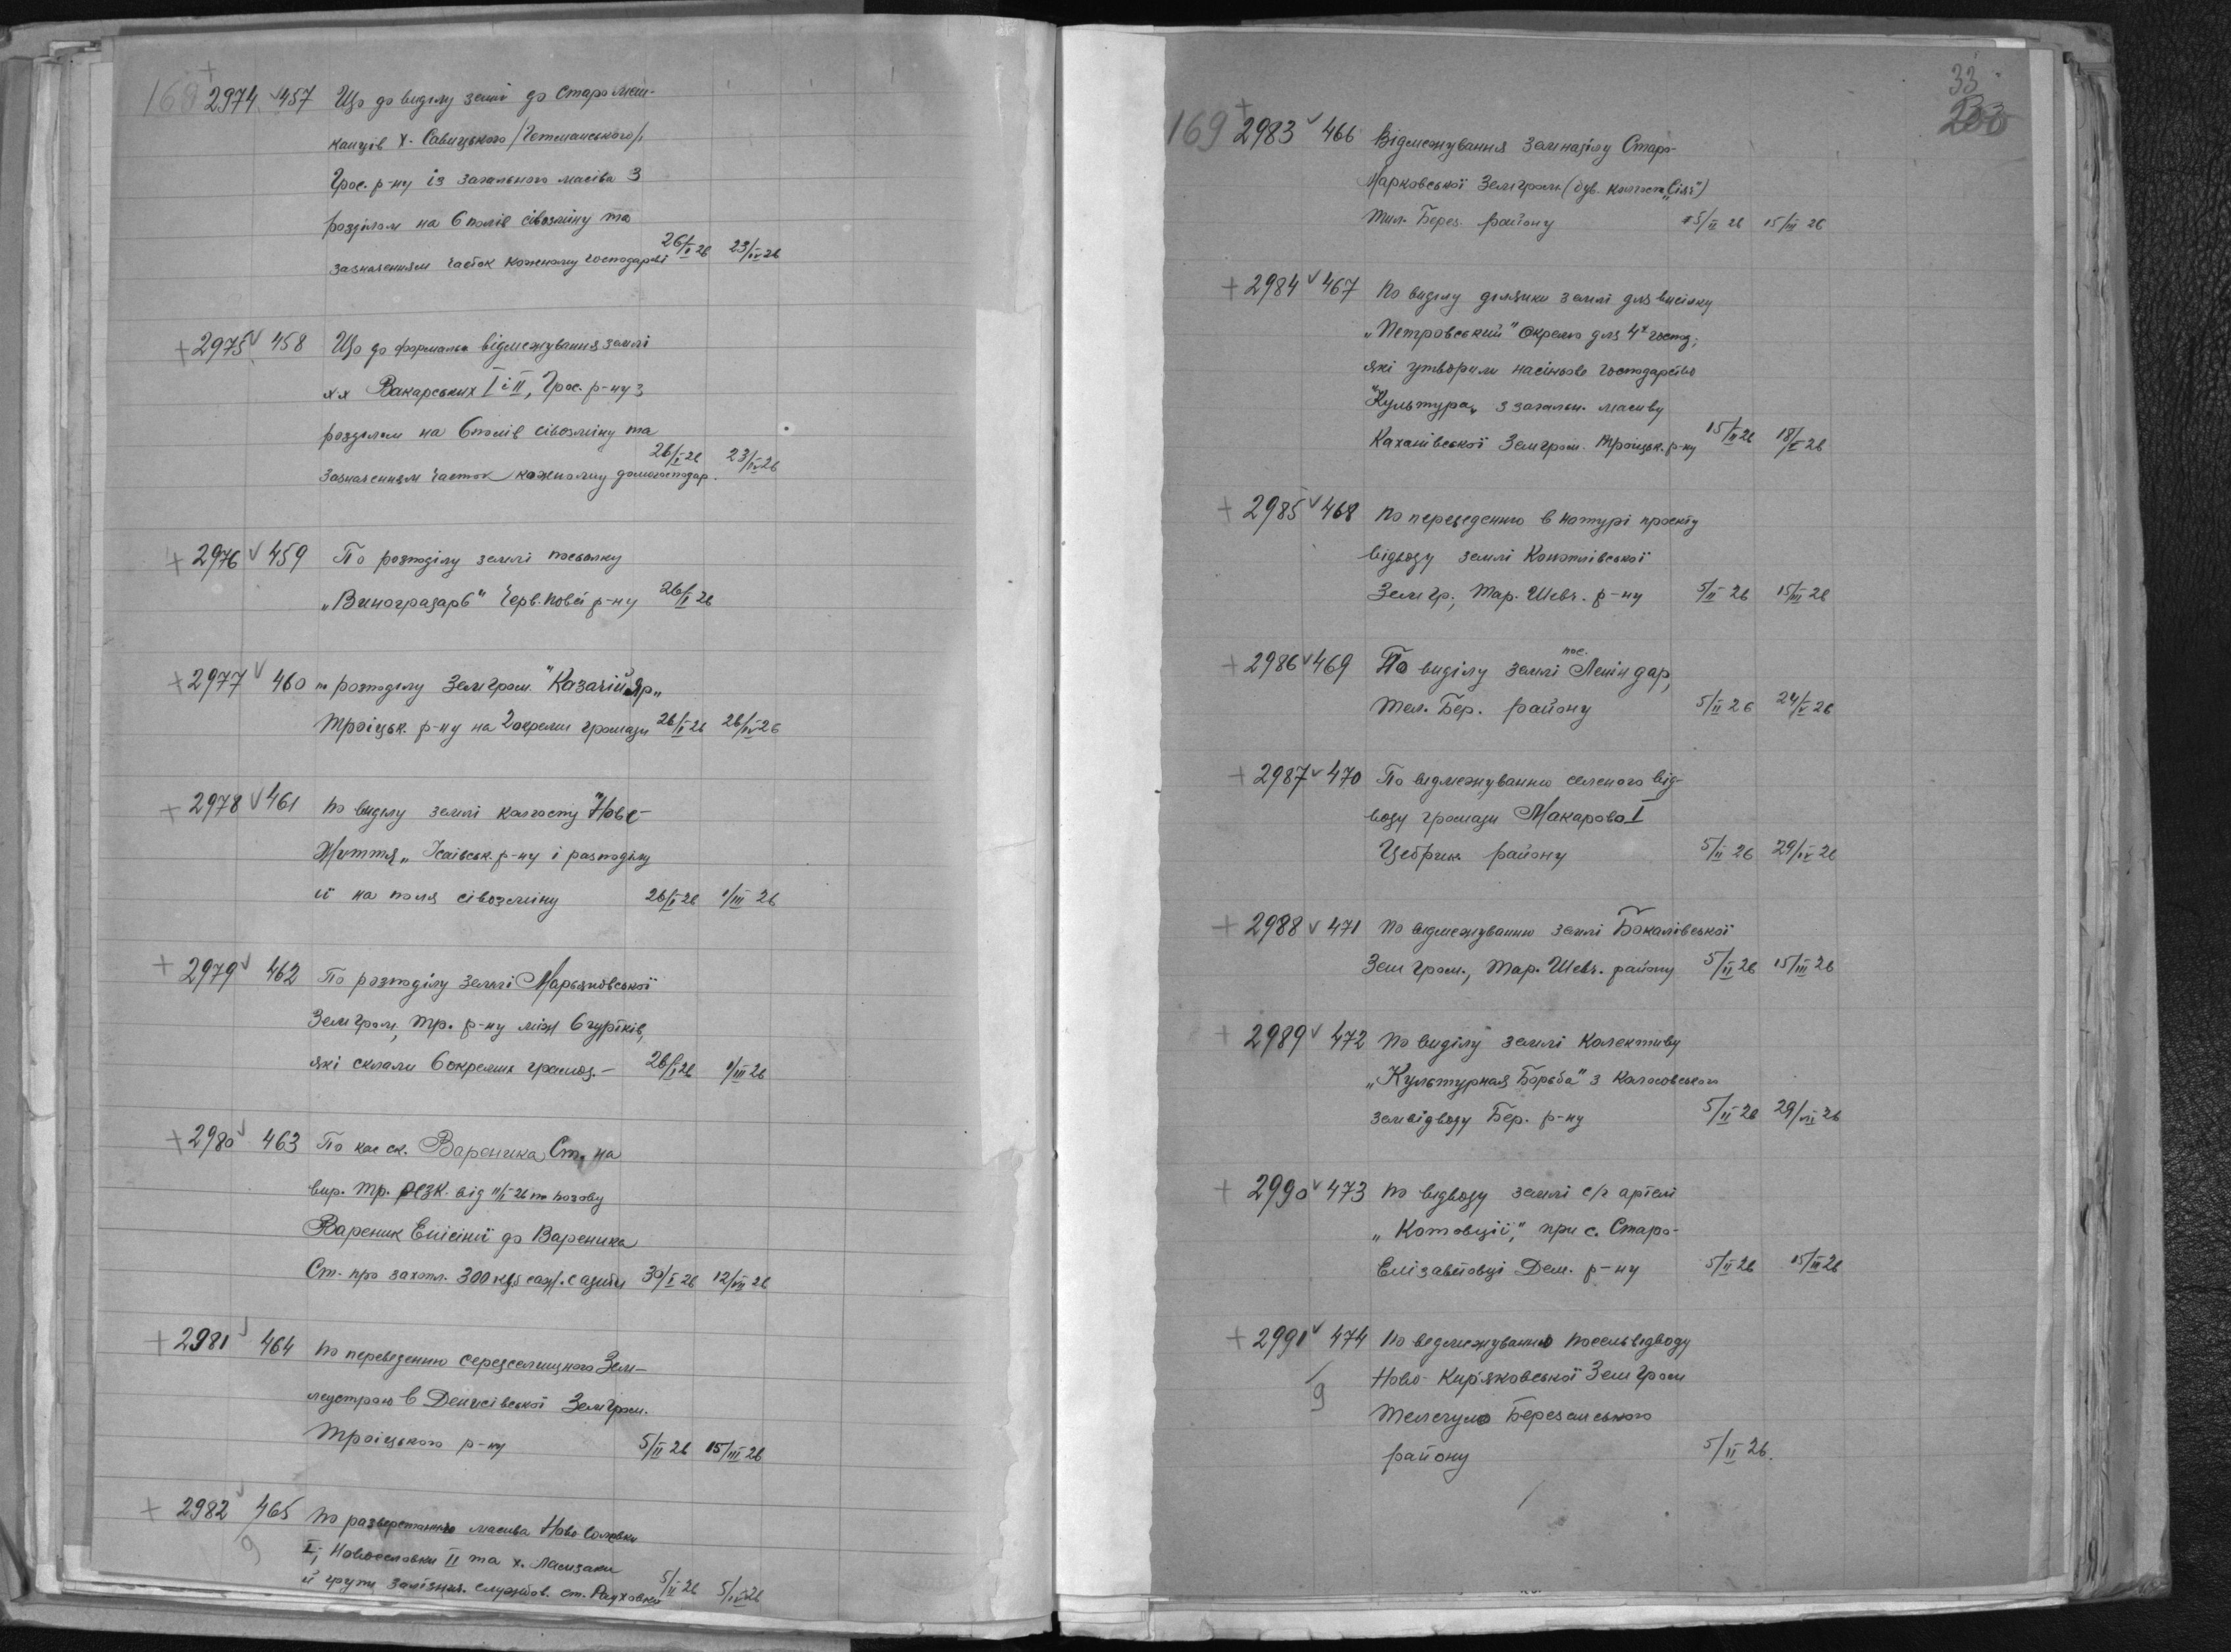 168 2974 457 Що до виділу землі до Старо меш-
канців х. Савицького /Гетманського/
Грос. р-ну із загального масіва з
розділом на 6 полів сівозміну та
зазначенням часток кожному господареві 26/I 26 23/IV 26
+ 2975 458 Що до формальн відмежування землі
х.х Вакарських I і II, Грос. р-ну з
розділом на 6 полів сівозміну та
зазначенням часток кожному домогосподар. 26/I 26 23/IV 26
+ 2976 459 По розподілу землі посьолку
„Виноградарь" Черв. Пові р-ну 26/I 26
+ 2977 460 по розподілу Земгром. "Казачій Яр„
Троіцьк. р-ну на 2 окремі громади 26/I 26 26/IV 26
+ 2978 461 по виділу землі колгоспу "Нове
Життя„ Ісаівськ. р-ну і разподілу
її на поля сівозміну 26/I 26 1/III 26
+ 2979 462 По розподілу землі Марьяновської
Земгром, Тр. р-ну між 6 гуртків,
які склали 6 окремих громад. - 26/I 26 1/III 26
+ 2980 463 По кас ск. Вареника Ст. на
вир. Тр. РЗК. від 11/I 26 по позову
Вареник Елісіні до Вареника
Ст. про захопл. 300 кв. саж. садиби 30/I 26 12/VII 26
+ 2981 464 по переведенню середселищного Зем-
леустрою в Денисівської Земгром.
Троіцького р-ну 5/II 26 15/III 26
+ 2982 465 по разверстанню масива Новоселовки
I, Новоселовки II та х.
й групи залізнич. службов. ст. Рауховки 5/II 26 5/IV 26
9
33
169 + 2983 466 Відмежування земнаділу Старо-
Марковської Земгром. (був. колгосп „Сіяч")
Тил. Берез. району 15/II 26 15/III 26
+ 2984 467 По виділу ділянки землі для висілку
„Петровський" окремо для 4х господ,
які утворили насіньове господарство
"Культура„ з загальн. масиву
КаханівськоїЗемгром. Троіцьк. р-ну 15/II 26 18/V 26
+ 2985 468 по переведенню в натурі проекту
відводу землі Коноплівської
Земгр., Тар. Шевч. р-ну 5/II 26 15/III 26
+ 2986 469 По виділу землі пос. Леніндар,
Тел. Бер. району 5/II 26 24/V 26
+ 2987 470 По відмежуванню селеного від-
воду громади Макарово I
Цебрик. району 5/II 26 29/IV 26
+ 2988 471 По відмежуванню землі Бокалівської
Земгром., Тар. Шевч. району 5/II 26 15/III 26
+ 2989 472 По виділу землі Колективу
„Культурная Борьба" з Колосовського
земвідводу Бер. р-ну 5/II 26 29/VI 26
+ 2990 473 по відводу землі с/г артелі
„Котовції", при с. Старо-
Елізаветовці Дем. р-ну 5/II 26 15/III 26
+ 2991 474 По ведмежуванню посельвідводу
9 Ново-Кир'яковської Земгром
Телегуло Березанського
району 5/II 26.